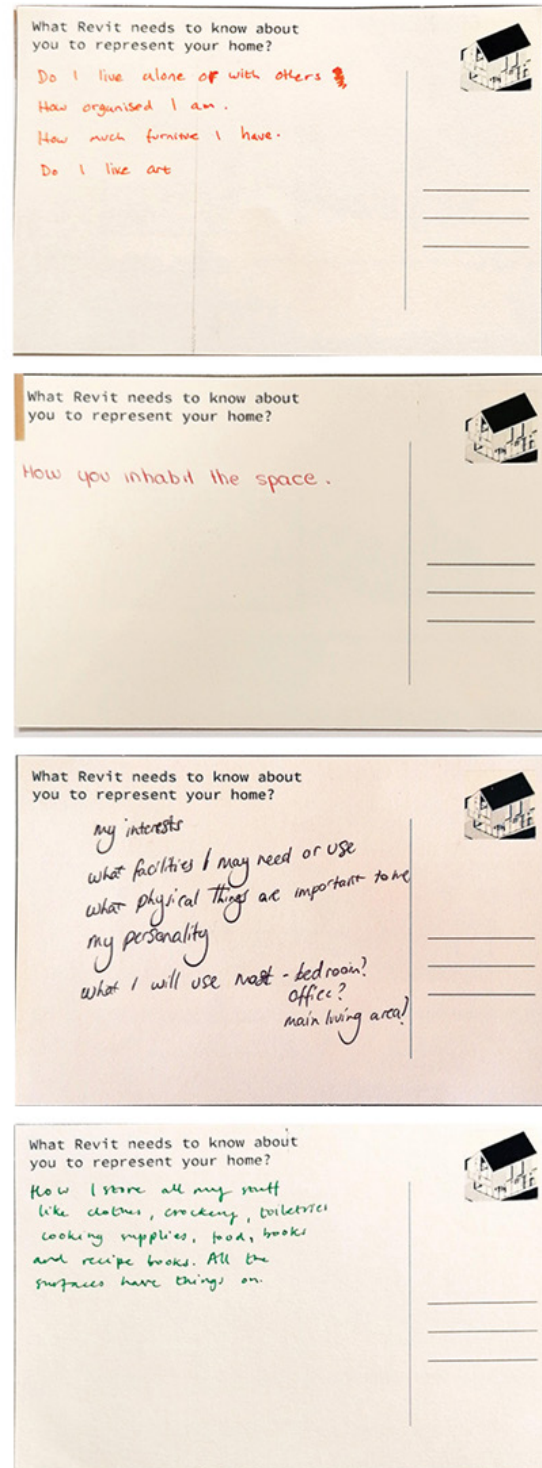 What Revit needs to know about
you to represent your home?
Do I live alone or with others
How organised I am.
How much furnitue I have.
Do I like art
What Revit needs to know about
you to represent your home?
How you inhabit the space.
What Revit needs to know about
you to represent your home?
my interests
what facilities I may need or use
what physical things are important to me
my personality
what I will use most - bedroom?
office?
main living area?
What Revit needs to know about
you to represent your home?
How I store all my stuff
like clothes, crockery, toiletries
cooking supplies, food, books
and recipe books. All the
surfaces have things on.